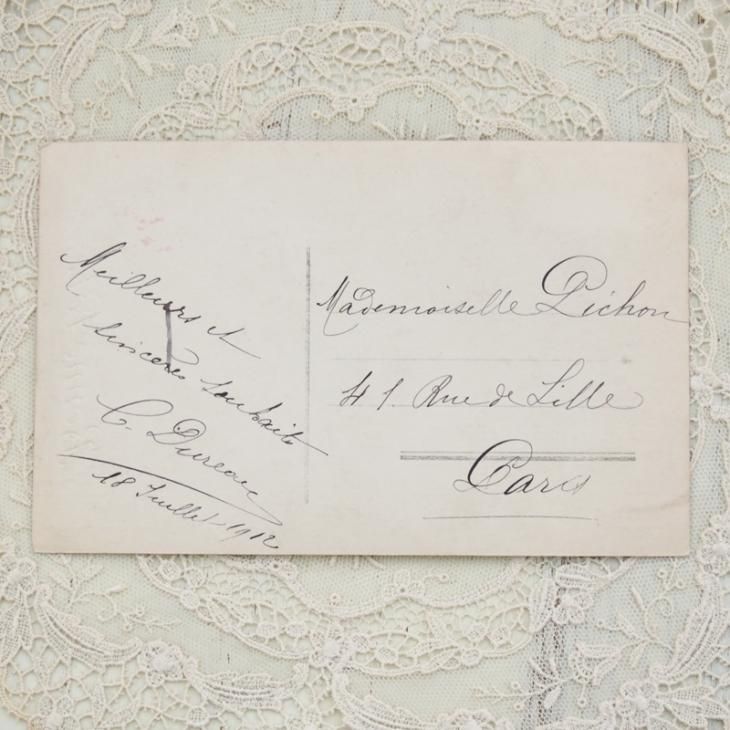 Meilleurs et
sincères souhaits
C. Dureau
18 Juillet 1912
Mademoiselle Pichon
41. Rue de Lille
Paris